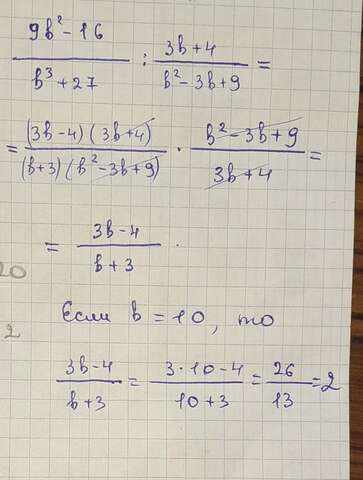 9b² - 16 / b³ + 27 : 3b + 4 / b² - 3b + 9 =
= (3b - 4) (3b + 4) / (b + 3) (b² - 3b + 9) · b² - 3b + 9 / 3b + 4 =
= 3b - 4 / b + 3 .
20
Если b = 10, то
2
3b - 4 / b + 3 = 3 · 10 - 4 / 10 + 3 = 26 / 13 = 2